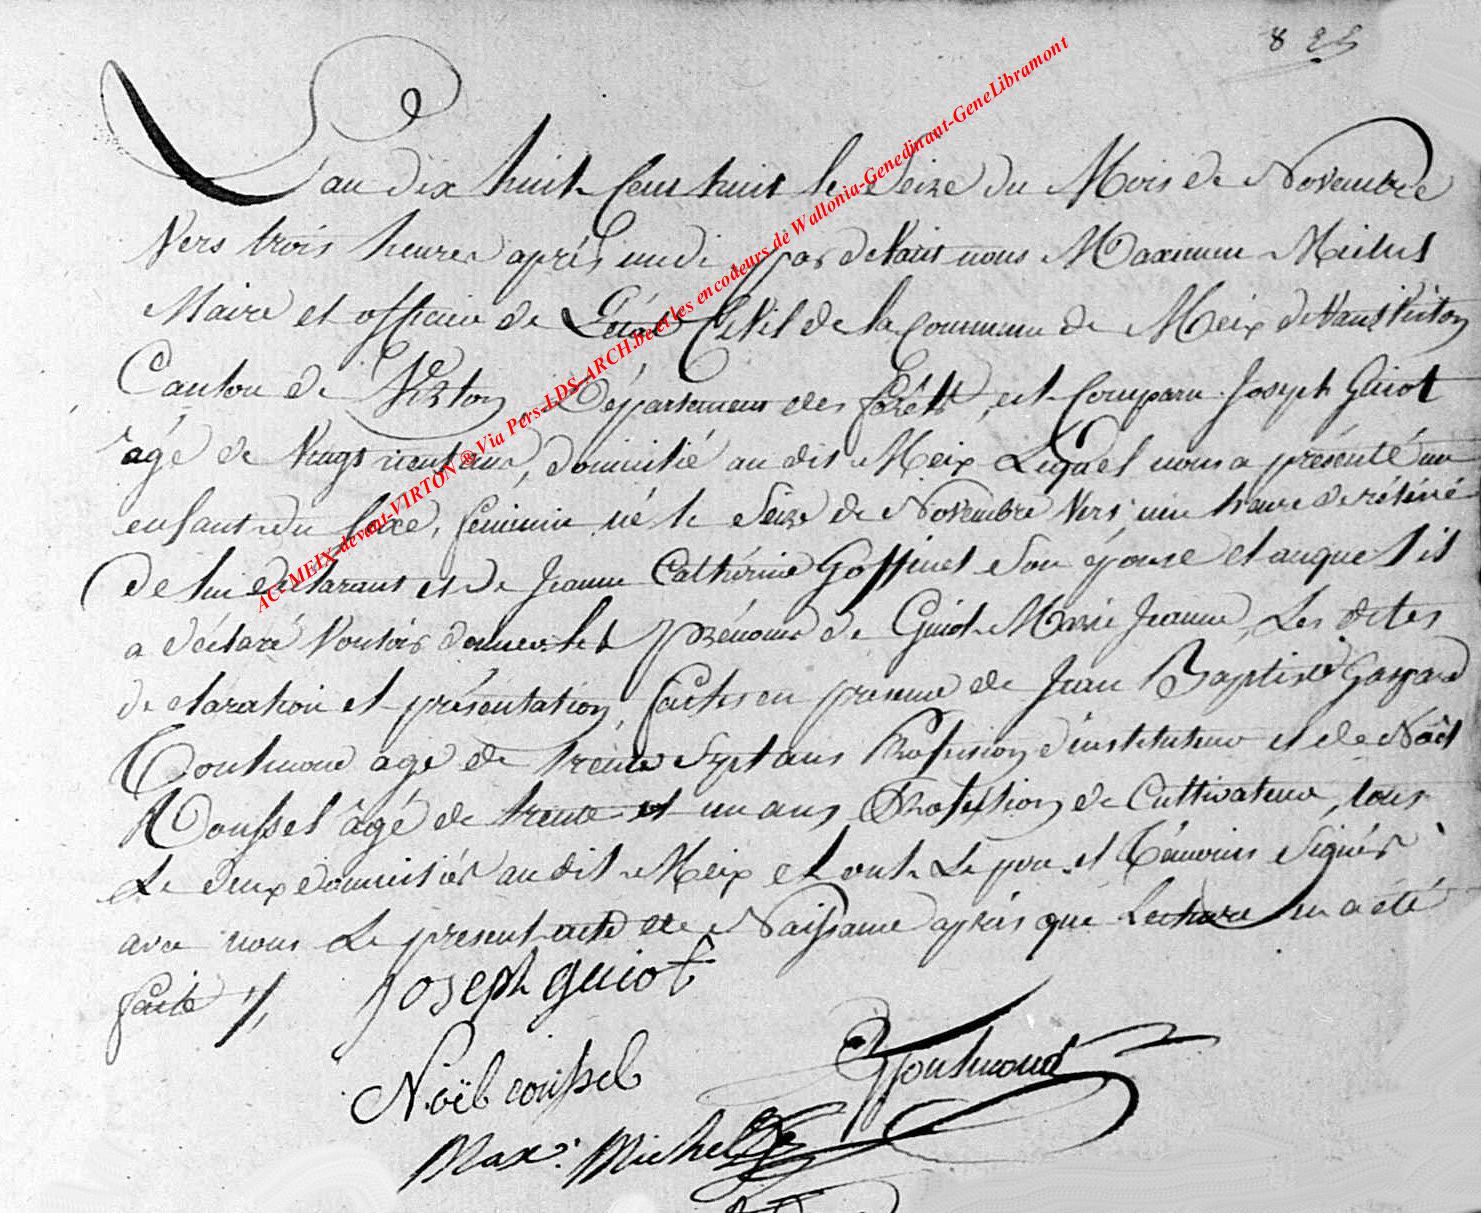 8
L'an dix huit Cent huit le Seize du Mois de Novembre
Vers trois heures après midi, par devant nous Maximin Michel
Maire et officier de L'état Civil de la Commune de Meix devant Virton
Canton de Virton, Département des forêts, est Comparu Joseph Guiot
âgé de Vingt neuf ans, domicilié au dit Meix Lequel nous a présenté un
enfant du sexe, feminin né le Seize de Novembre Vers une heure de rélévé
de lui déclarant et de Jeanne Cathérine Goffinet Son épouse et auquel il
a déclaré Vouloir donner les prénoms de Guiot Marie Jeanne, Les dites
déclaration et présentation, faites en presence de Jean Baptiste Gaspard
Tonhnoud age de trente Sept ans Profession d'instituteur et de Noël
Roussel âgé de trente et un ans Profession de Cultivateur, tous
Le deux domiciliés au dit Meix et ont Le père et Témoins Signés
avec nous Le present acte de Naissance après que Lecture en a été
faite
Joseph guiot
Noël
Max. Michel
ACi-MEIX-devant-VIRTON ® Via Pers-LDS-ARCH.be et les encodeurs de Wallonia-Genedinant-GeneLibramont